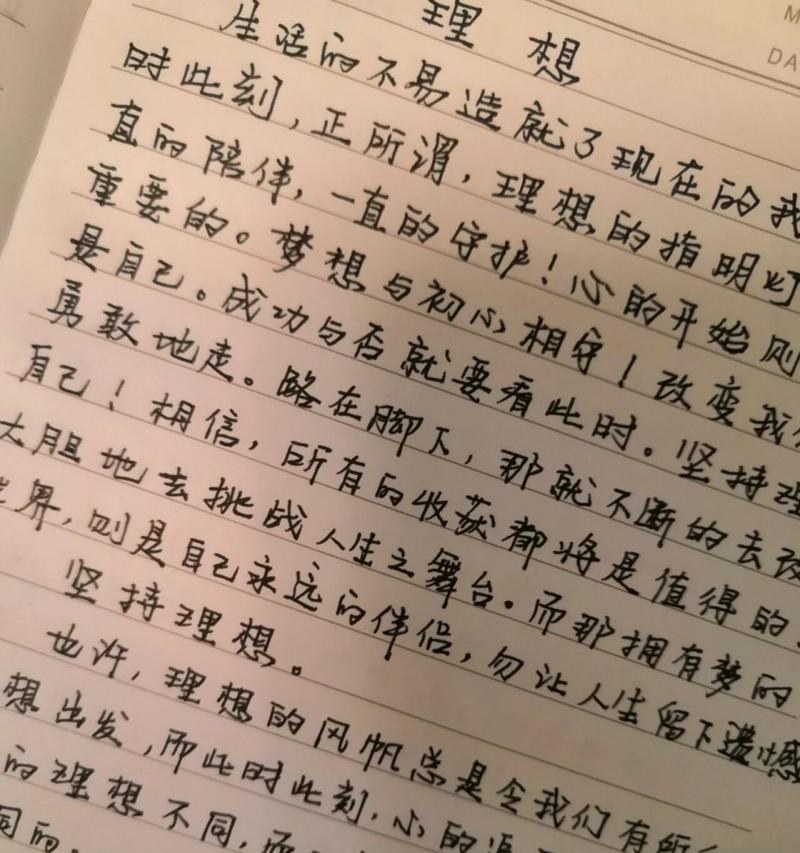 M
DA
理想
生活的不易造就了现在的我
时此刻，正所谓，理想的指明灯
直的陪伴，一直的守护！心的开始则
重要的。梦想与初心相守！改变我
是自己。成功与否就要看此时。坚持理
勇敢地走。路在脚下，那就不断的去改
自己！相信，所有的收获都将是值得的
大胆地去挑战人生之舞台。而那拥有梦的
世界，则是自己永远的伴侣，勿让人生留下遗憾
坚持理想。
也许，理想的风帆总是令我们有所
想出发，而此时此刻，心的
的理想不同，而
同的